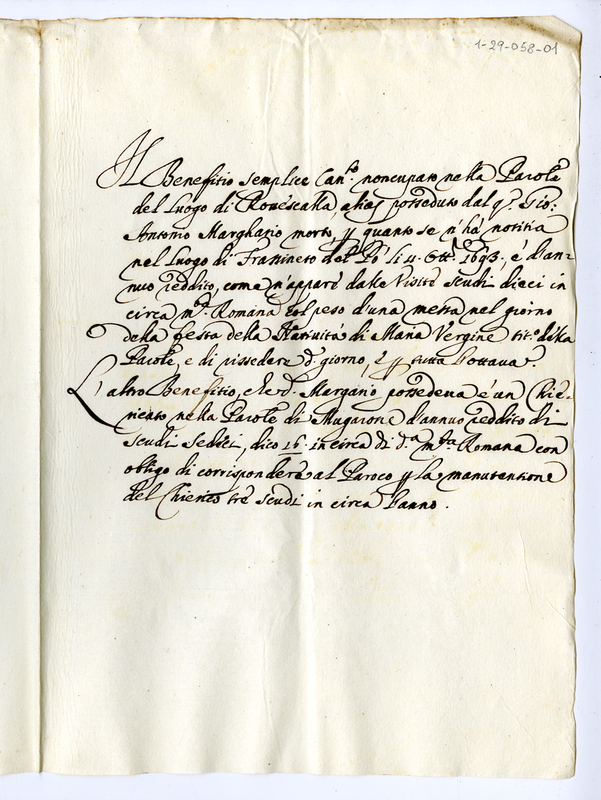 1-29-058-01
Il Benefitio semplice Can.to noncupato nella Parole
del Luogo di Rovescalla, alias posseduto dal q. Gio:
Antonio Marghario morto, p quanto se n'hà notitia
nel Luogo di Frassineto del Pò li 4. Ott. 1693, è d'an-
nuo reddito, come n'appare dalle Visite scudi dieci in
circa m.ta Romana col peso d'una messa nel giorno
della festa della Natività di Maria Vergine tit.o della
Parole, e di rissedere d. giorno, e p tutta l'ottava.
L'altro Benefitio, che d. Margario possedeva è un Chie-
ricato nella Parole di Mugarone d'annuo reddito di
scudi sedici, dico 16. in circa di d.a m.ta Romana con
obligo di corrispondere al Paroco p la manutentione
del Chierico trè scudi in circa l'anno.